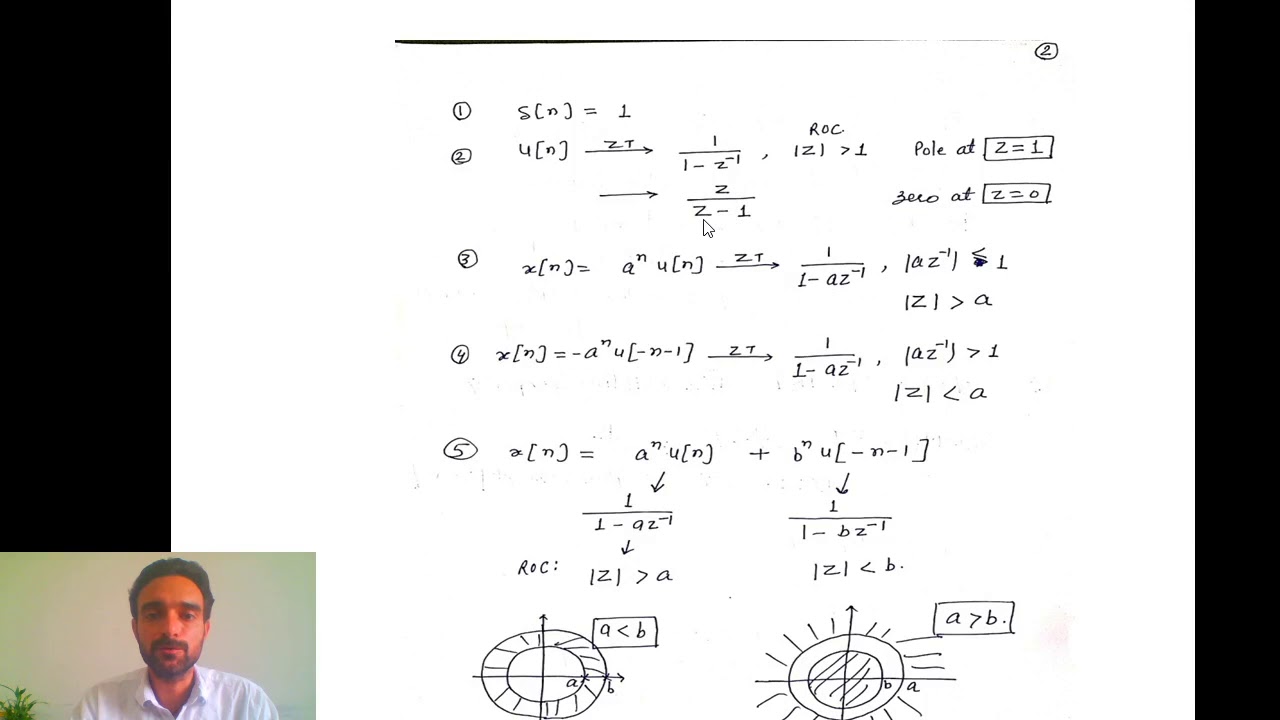 ②
① δ[n] = 1
② u[n] —ZT→ 1/(1 - z⁻¹) , ROC. |Z| > 1 Pole at Z = 1
→ z/(z - 1) zero at z = 0
③ x[n] = aⁿ u[n] —ZT→ 1/(1 - az⁻¹) , |az⁻¹| < 1
|Z| > a
④ x[n] = -aⁿ u[-n-1] —ZT→ 1/(1 - az⁻¹) , |az⁻¹| > 1
|Z| < a
⑤ x[n] = aⁿ u[n] + bⁿ u[-n-1]
↓ ↓
1/(1 - az⁻¹) 1/(1 - bz⁻¹)
↓
ROC: |Z| > a |Z| < b.
a < b a > b.
a b b a